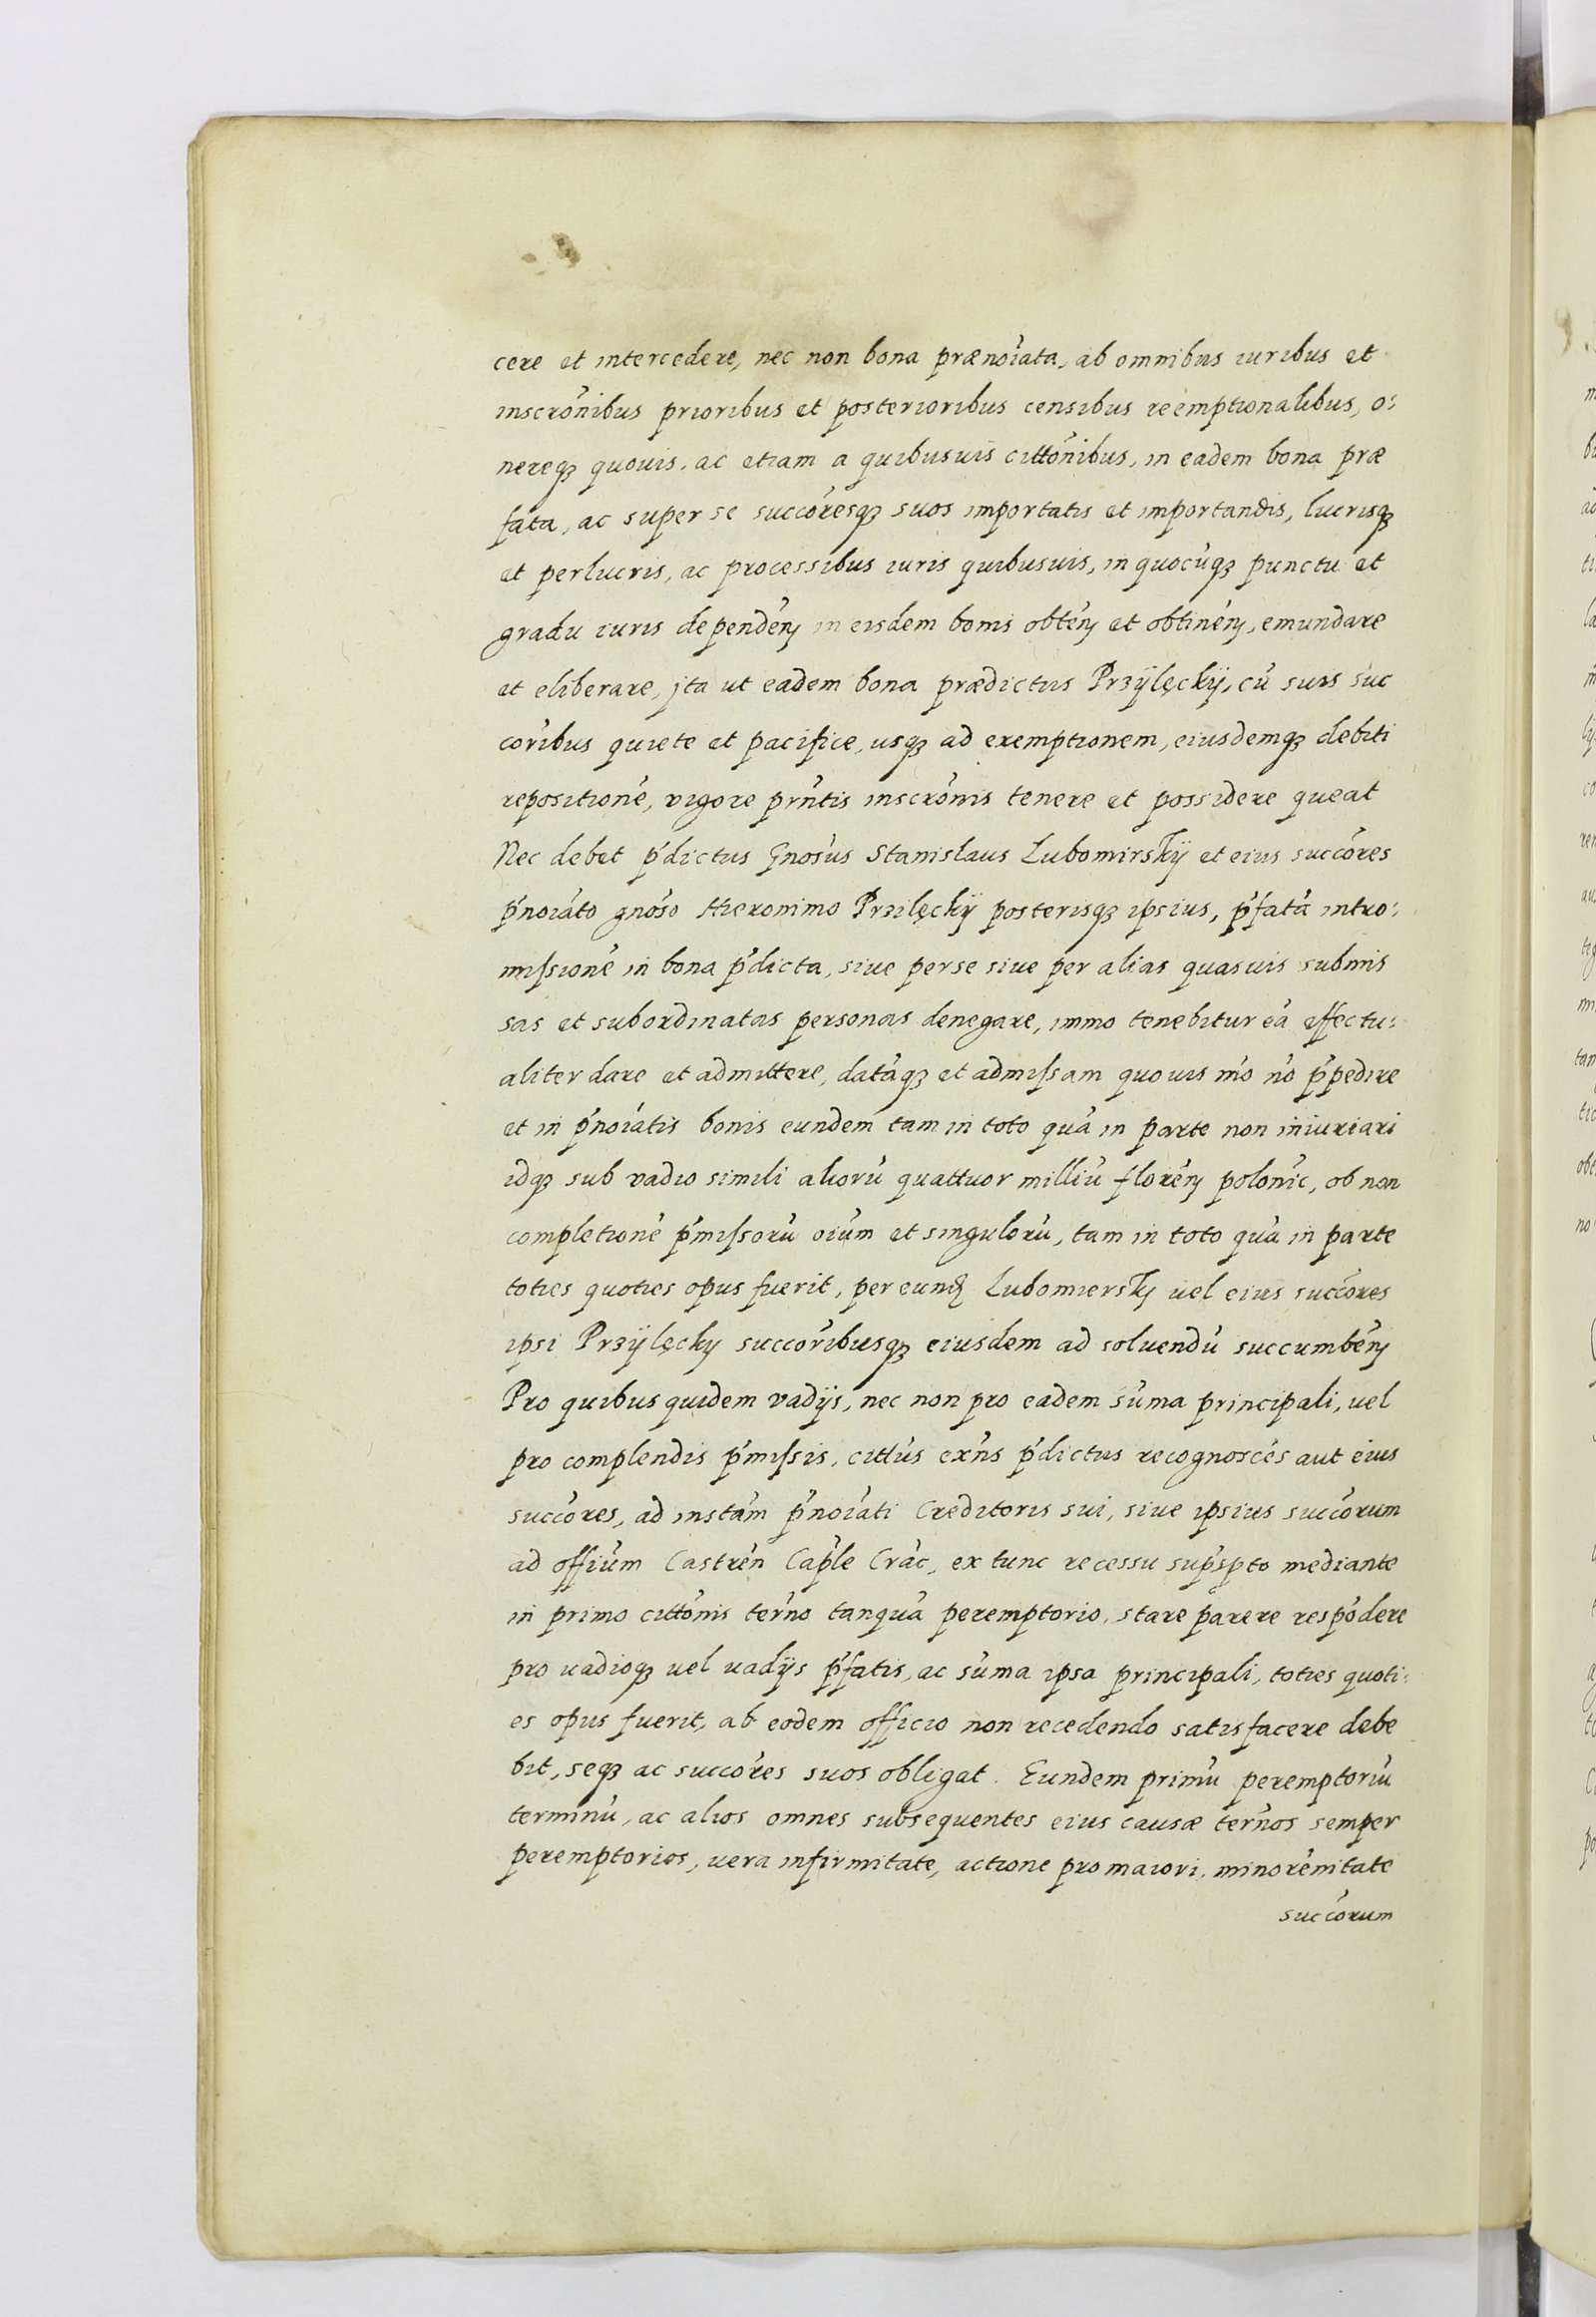 cere et intercedere, nec non bona prænoíata, ab omnibus iuribus et
inscrónibus prioribus et posterioribus censibus reemptionalibus, o:
nereqꝫ quouis, ac etiam a quibusuis cittónibus, in eadem bona præ
fata, ac super se succóresqꝫ suos importatis et importandis, lucrisqꝫ
et perlucris, ac processibus iuris quibusuis, in quocúqꝫ punctu et
gradu iuris dependéñ in eisdem bonis obtéñ et obtinéñ, emundare
et eliberare, jta ut eadem bona prædictus Przÿlęckÿ, cú suis suc
córibus quiete et pacifice, usqꝫ ad exemptionem, eiusdemqꝫ debiti
repositioné, vigore prńtis inscrónis tenere et possidere queat
Nec debet ṕdictus Gnosús Stanislaus Lubomirskÿ et eius succóres
ṕnoiáto gnóso Hieronimo Przilęckÿ posterisqꝫ ipsius, ṕfatá intro:
mißioné in bona ṕdicta, siue per se siue per alias quasuis submis
sas et subordinatas personas denegare, immo tenebitur eá effectu:
aliter dare et admittere, datáqꝫ et admißam quouis mó nó ṕpedire
et in ṕnoiátis bonis eundem tam in toto quá in parte non iniuriari
idqꝫ sub vadio simili aliorú quattuor milliú floréñ polonic, ob non
completioné ṕmißorú oiúm et singulorú, tam in toto quá in parte
toties quoties opus fuerit, per eund Lubomiersky uel eius succóres
ipsi Przÿlęcky succóribusqꝫ eiusdem ad soluendú succumbéñ
Pro quibus quidem vadijs, nec non pro eadem súma principali, uel
pro complendis ṕmißis, citlús exńs ṕdictus recognoscés aut eius
succóres, ad instám ṕnoiáti Creditoris sui, siue ipsius succórum
ad offiúm Castrén Caple Crác, ex tunc recessu supśpto mediante
in primo cittónis terńo tanquá peremptorio, stare parere respódere
pro uadioqꝫ uel uadijs ṕfatis, ac súma ipsa principali, toties quoti:
es opus fuerit, ab eodem officio non recedendo satisfacere debe
bit, seqꝫ ac succóres suos obligat. Eundem primú peremptoriú
terminú, ac alios omnes subsequentes eius causæ terńos semper
peremptorios, uera infirmitate, actione pro maiori, minorénitate
succórum